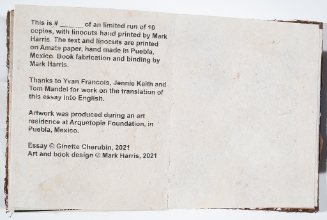 This is #______ of an limited run of 10
copies, with linocuts hand printed by Mark
Harris. The text and linocuts are printed
on Amate paper, hand made in Puebla,
Mexico. Book fabrication and binding by
Mark Harris.
Thanks to Yvan Francois, Jennie Keith and
Tom Mandel for work on the translation of
this essay into English.
Artwork was produced during an art
residence at Arquetopia Foundation, in
Puebla, Mexico.
Essay © Ginette Cherubin, 2021
Art and book design © Mark Harris, 2021